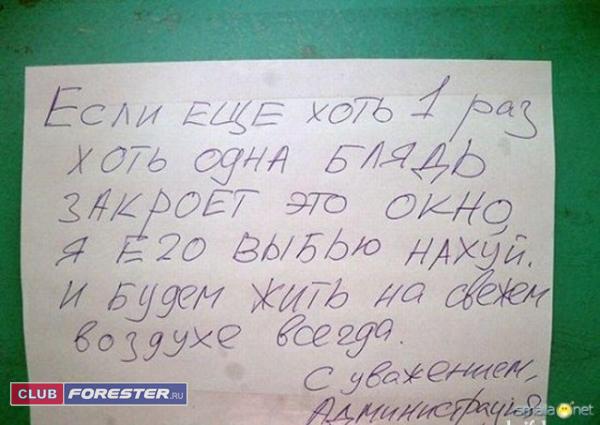 Если ЕЩЕ ХОТЬ 1 раз
ХОТЬ ОДНА БЛЯДЬ
ЗАКРОЕТ ЭТО ОКНО,
Я ЕГО ВЫБЬЮ НАХУЙ.
И БУДЕМ ЖИТЬ НА СВЕЖЕМ
ВОЗДУХЕ ВСЕГДА.
С уважением,
Администрация
CLUB FORESTER.RU
smaila net